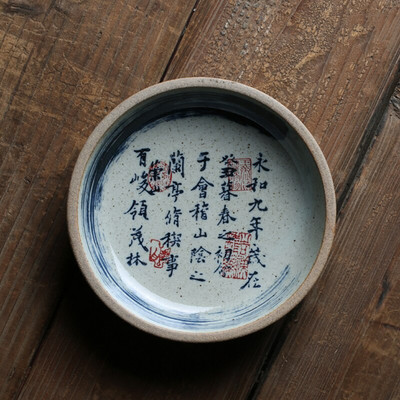 永和九年歲在
癸丑暮春之初會
于會稽山陰之
蘭亭脩禊事
有崇
峻領茂林